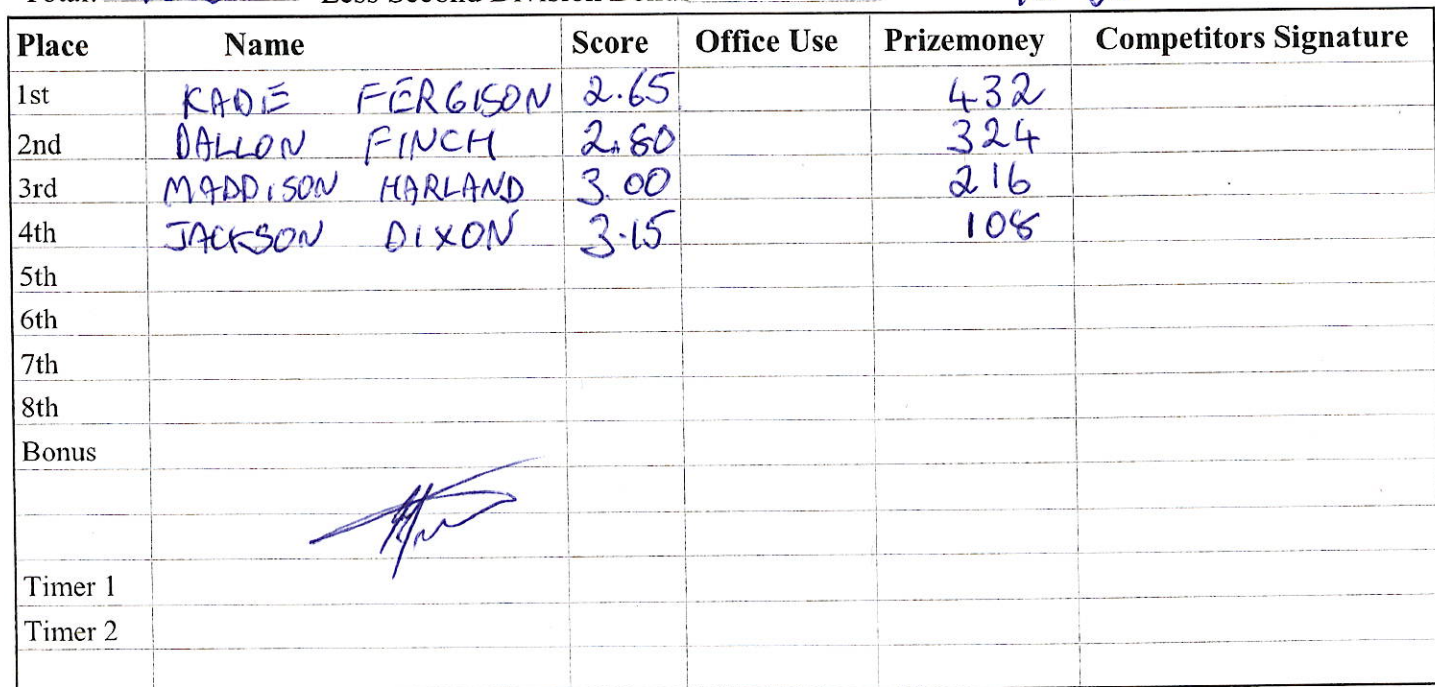 Total: Less Second Division Bonu
Place Name Score Office Use Prizemoney Competitors Signature
1st KADIE FERGISON 2.65 432
2nd DALLON FINCH 2.80 324
3rd MADDISON HARLAND 3.00 216
4th JACKSON DIXON 3.15 108
5th
6th
7th
8th
Bonus
Timer 1
Timer 2